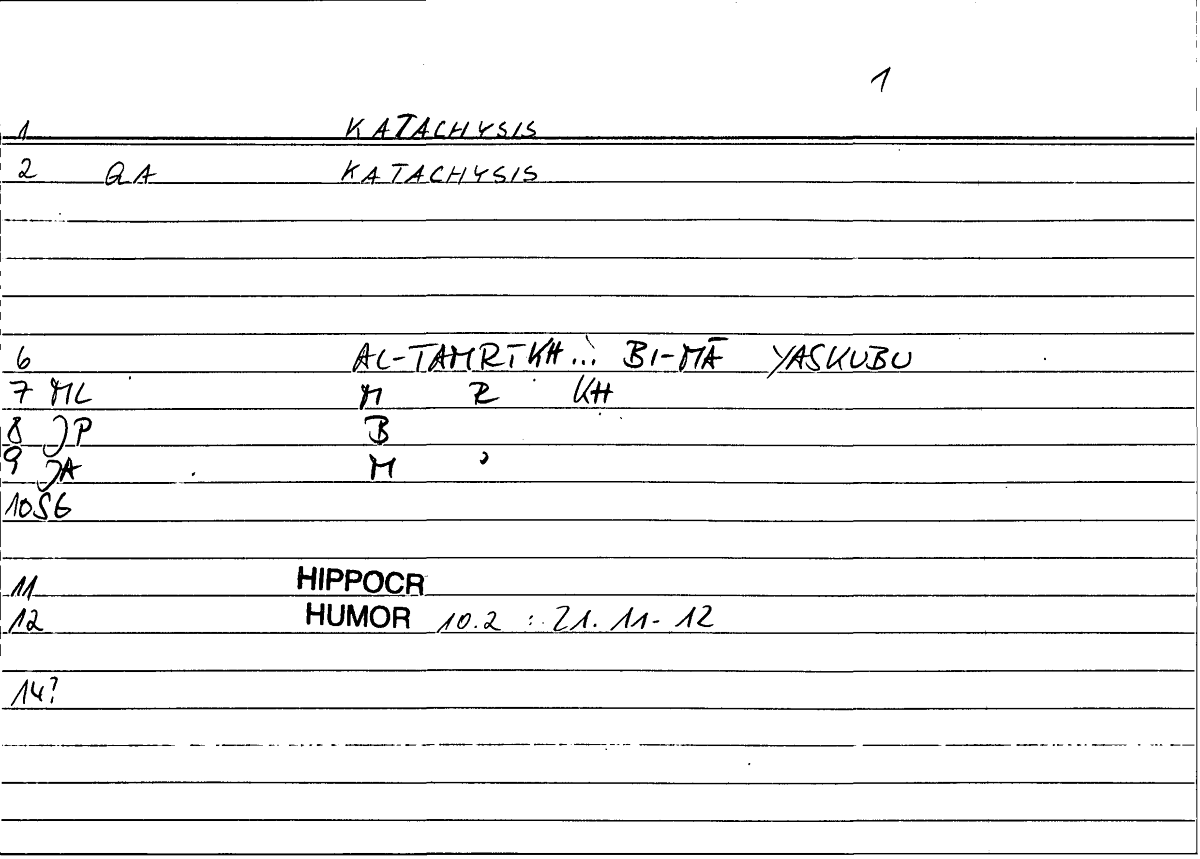 1
1 KATACHYSIS
2 QA KATACHYSIS
6 AL-TAMRĪKH... BI-MĀ YASKUBU
7 ML M R KH
8 JP B
9 JA M
10 SG
11 HIPPOCR
12 HUMOR 10.2 : Z1. 11-12
14?